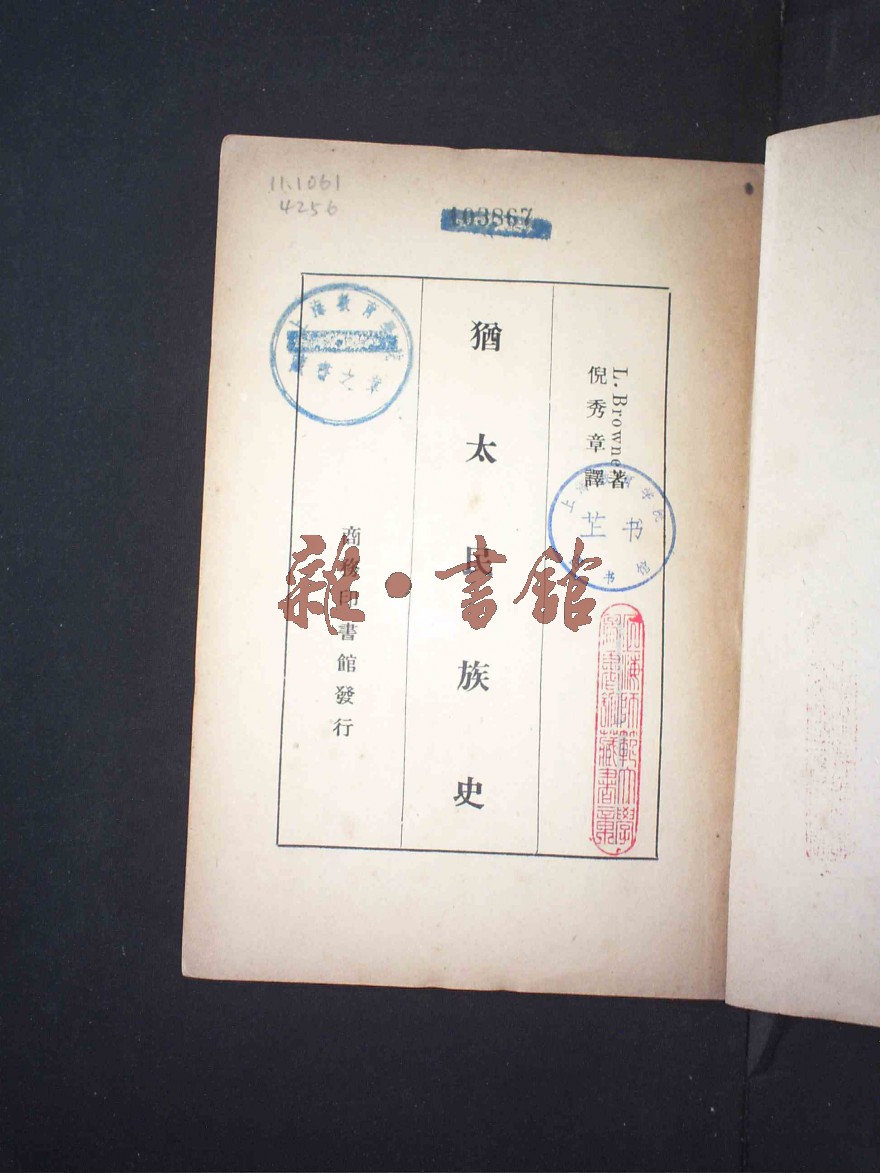 11.1061
4256
103867
L. Browne 著
倪秀章譯
猶太民族史
商務印書館發行
雜·書館
上海師範大學
藏書章